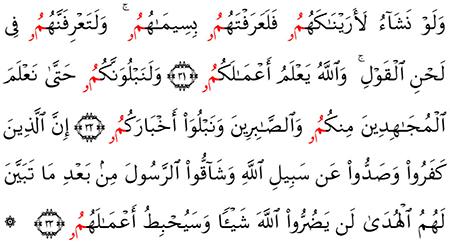 وَلَوْ نَشَآءُ لَأَرَيْنَـٰكَهُمُۥ فَلَعَرَفْتَهُمُۥ بِسِيمَـٰهُمُۥ ۚ وَلَتَعْرِفَنَّهُمُۥ فِى
لَحْنِ ٱلْقَوْلِ ۚ وَٱللَّهُ يَعْلَمُ أَعْمَـٰلَكُمُۥ ﴿٣١﴾ وَلَنَبْلُوَنَّكُمُۥ حَتَّىٰ نَعْلَمَ
ٱلْمُجَـٰهِدِينَ مِنكُمُۥ وَٱلصَّـٰبِرِينَ وَنَبْلُوَا۟ أَخْبَارَكُمُۥ ﴿٣٢﴾ إِنَّ ٱلَّذِينَ
كَفَرُوا۟ وَصَدُّوا۟ عَن سَبِيلِ ٱللَّهِ وَشَآقُّوا۟ ٱلرَّسُولَ مِنۢ بَعْدِ مَا تَبَيَّنَ
لَهُمُ ٱلْهُدَىٰ لَن يَضُرُّوا۟ ٱللَّهَ شَيْـًٔا وَسَيُحْبِطُ أَعْمَـٰلَهُمُۥ ﴿٣٣﴾ ۞